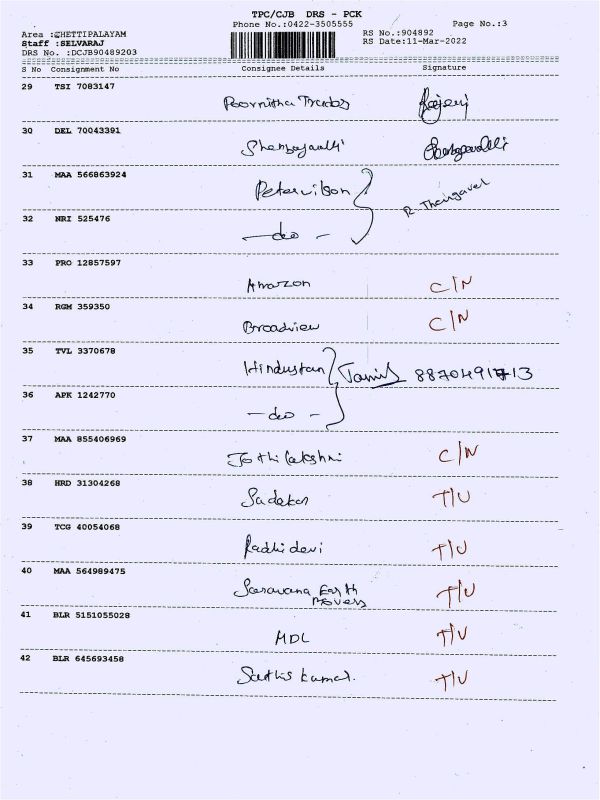 TPC/CJB DRS - PCK
Phone No.:0422-3505555
Page No.:3
Area :CHETTIPALAYAM
Staff :SELVARAJ
DRS No. :DCJB90489203
RS No.:904892
RS Date:11-Mar-2022
S No Consignment No Consignee Details Signature
29 TSI 7083147 Poornitha Traders
30 DEL 70043391
31 MAA 566863924 Petervilson R. Thangavel
32 NRI 525476 — do —
33 PRO 12857597 Amazon C/N
34 RGM 359350 Broadview C/N
35 TVL 3370678 Hindustan Tamil 8870491713
36 APK 1242770 — do —
37 MAA 855406969 Jothilakshmi C/N
38 HRD 31304268 T/U
39 TCG 40054068 Radhidevi T/U
40 MAA 564989475 Saravana Earth
Movers T/U
41 BLR 5151055028 MDL T/U
42 BLR 645693458 Sathis kumar. T/U